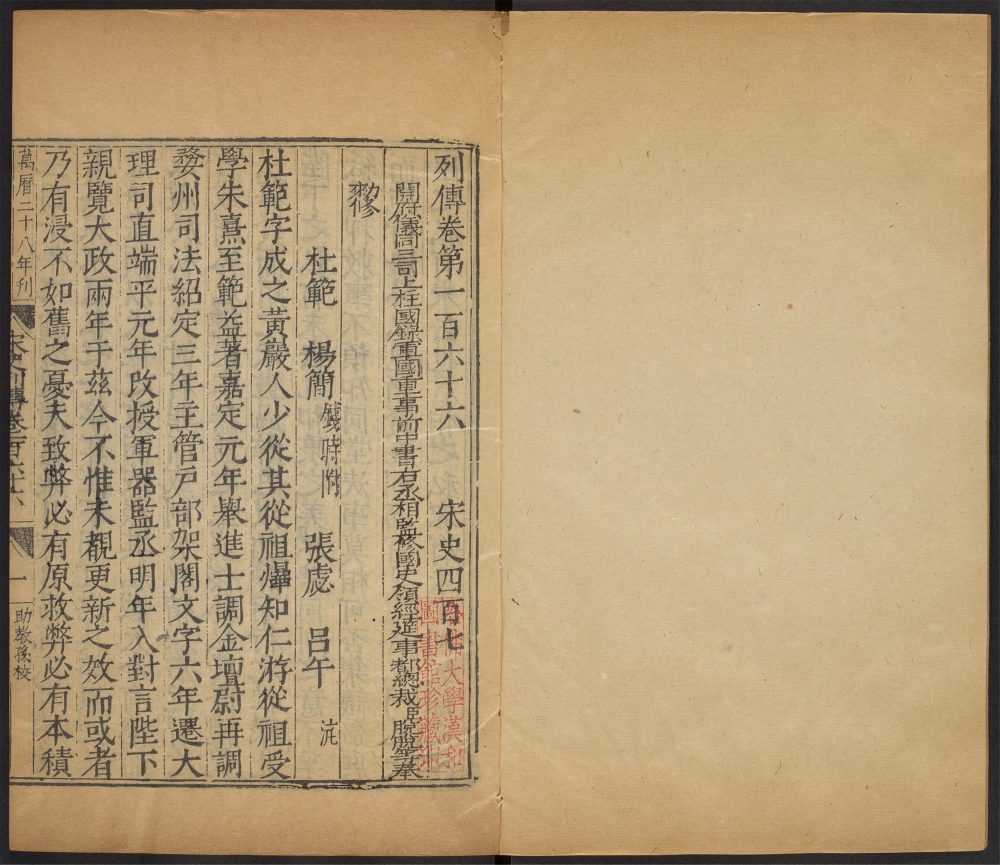 列傳卷第一百六十六 宋史四百七
開府儀同三司上柱國錄軍國重事前中書右丞相監修國史領經筵事都總裁臣脫脫等奉
敕修
杜範 楊簡 錢時附 張虙 呂午 沆
杜範字成之黃巖人少從其從祖爗知仁游從祖受
學朱熹至範益著嘉定元年舉進士調金壇尉再調
婺州司法紹定三年主管戶部架閣文字六年遷大
理司直端平元年改授軍器監丞明年入對言陛下
親覽大政兩年于茲今不惟未覩更新之效而或者
乃有浸不如舊之憂夫致弊必有原救弊必有本積
萬曆二十八年刊
宋史列傳卷一百六十六
一
助教孫校
哈佛大學漢和
圖書館珍藏印